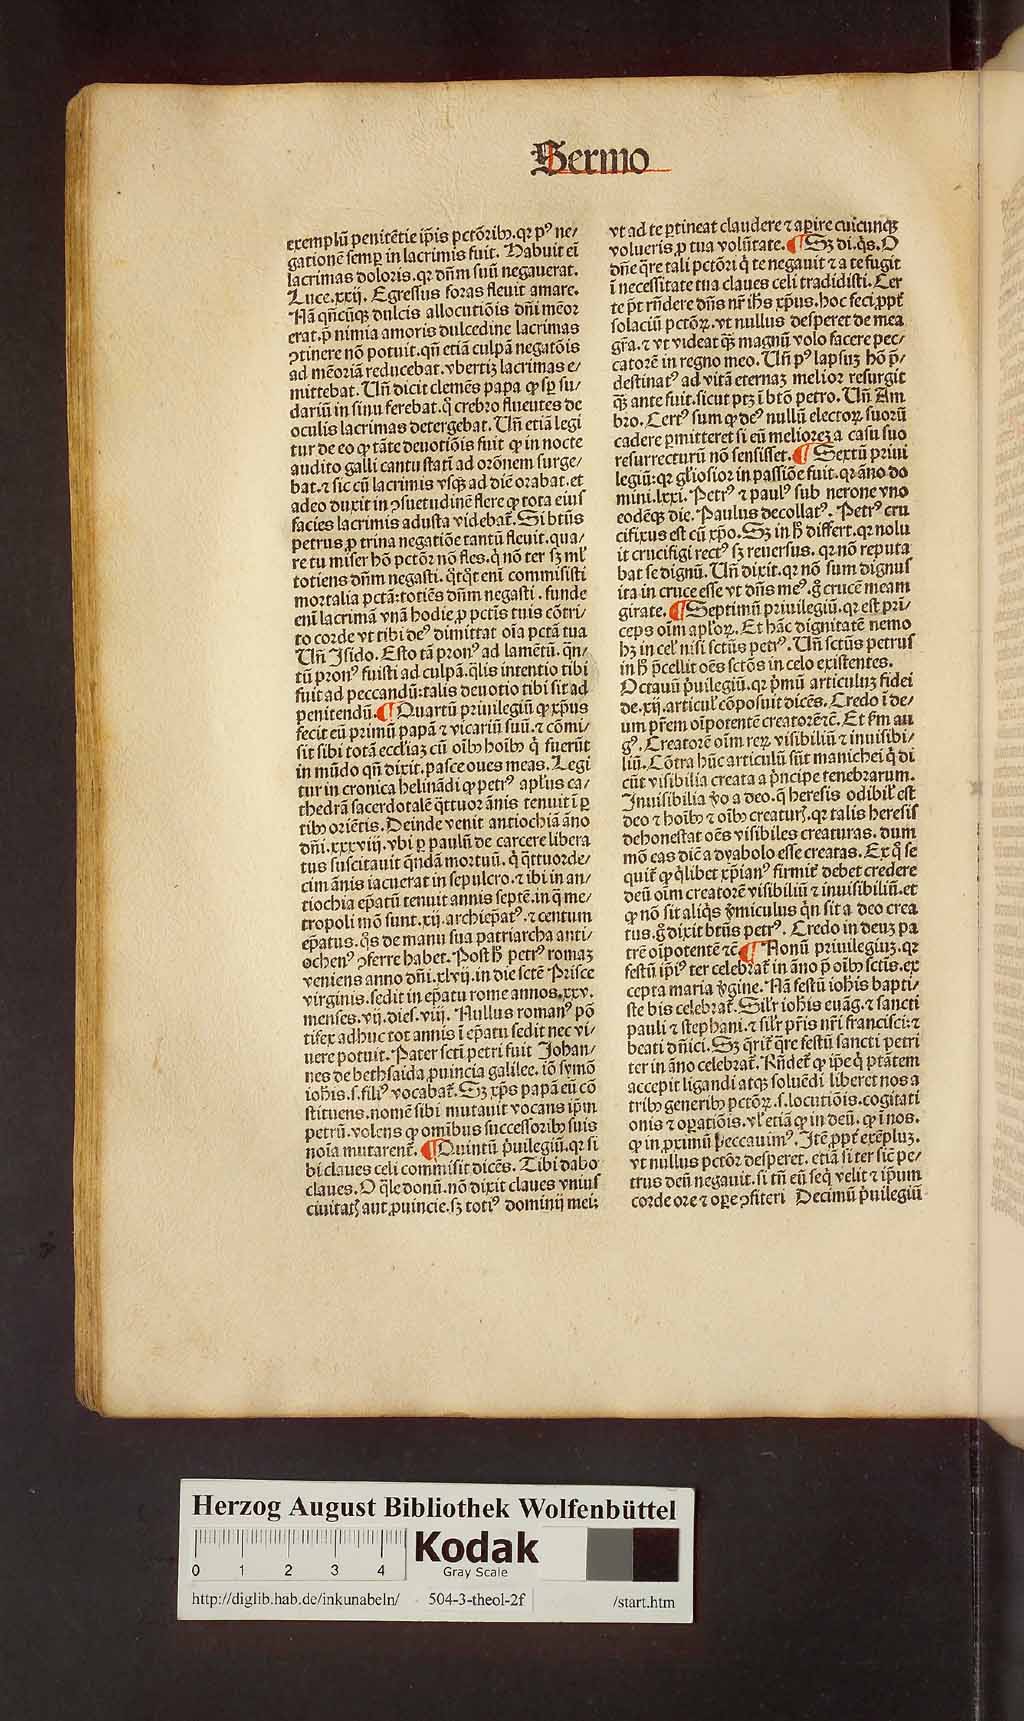 Sermo
exemplū penitētie ip̄is pctōribꝰ. qꝛ pꝰ ne/
gationē semꝑ in lacrimis fuit. Habuit eī
lacrimas doloris. qꝛ dn̄m suū negauerat.
Luce. xxij. Egressus foras fleuit amare.
Nā qn̄cūqꝫ dulcis allocutiōis dn̄i mēoꝛ
erat. p̄ nimia amoris dulcedine lacrimas
ꝯtinere nō potuit. qn̄ etiā culpā negatōis
ad mēoriā reducebat. vbertiꝫ lacrimas e/
mittebat. Un̄ dicit clemēs papa ꝙ sꝑ su/
dariū in sinu ferebat. q̇ crebro fluentes de
oculis lacrimas detergebat. Un̄ etiā legi
tur de eo ꝙ tāte deuotiōis fuit ꝙ in nocte
audito galli cantu statī ad orōnem surge/
bat. ⁊ sic cū lacrimis vsqꝫ ad diē orabat. et
adeo duxit in ꝯsuetudinē flere ꝙ tota eius
facies lacrimis adusta videbat̄. Si btūs
petrus ꝓ trina negatiōe tantū fleuit. qua/
re tu miser hō pctōꝛ nō fles. q̇ nō ter sꝫ ml̓
totiens dn̄m negasti. q̇tq̇t enī commisisti
mortalia pctā: totiēs dn̄m negasti. funde
enī lacrimā vnā hodie ꝓ pctīs tuis cōtri/
to corde vt tibi deꝰ dimittat oīa pctā tua
Un̄ Isido. Esto tā pronꝰ ad lamētū. q̄n/
tū pronꝰ fuisti ad culpā. q̄lis intentio tibi
fuit ad peccandū: talis deuotio tibi sit ad
penitendū. ¶ Quartū priuilegiū ꝙ xp̄us
fecit eū primū papā ⁊ vicariū suū. ⁊ cōmi/
sit sibi totā eccl̓iaꝫ cū oībꝰ hoībꝰ q̇ fuerūt
in mūdo qn̄ dixit. pasce oues meas. Legi
tur in cronica helinādi ꝙ petrꝰ apl̓us ca/
thedrā sacerdotalē q̄ttuoꝛ ānis tenuit ī ꝑ
tibꝰ oriētis. Deinde venit antiochiā āno
dn̄i. xxxviij. vbi ꝑ paulū de carcere libera
tus suscitauit q̄ndā mortuū. q̇ q̄ttuorde/
cim ānis iacuerat in sepulcro. ⁊ ibi in an/
tiochia ep̄atū tenuit annis septē. in q̄ me/
tropoli mō sunt. xij. archiep̄atꝰ. ⁊ centum
ep̄atus. q̄s de manu sua patriarcha anti/
ochenꝰ ꝯferre habet. Post h̓ petrꝰ romaꝫ
veniens anno dn̄i. xlvij. in die sctē Prisce
virginis. sedit in ep̄atu rome annos. xxv.
menses. vij. dies. viij. Nullus romanꝰ pō
tifex adhuc tot annis ī ep̄atu sedit nec vi/
uere potuit. Pater scti petri fuit Johan/
nes de bethsaida ꝓuincia galilee. iō symō
ioh̄is. s. filiꝰ vocabat̄. Sꝫ xp̄s papā eū cō
stituens. nomē sibi mutauit vocans ip̄m
petrū. volens ꝙ omībus successoribꝰ suis
noīa mutarent̄. ¶ Quintū p̓uilegiū. qꝛ si
bi claues celi commisit dicēs. Tibi dabo
claues. O q̄le donū. nō dixit claues vnius
ciuitatꝭ aut ꝓuincie. sꝫ totiꝰ dominij mei:
vt ad te ꝑtineat claudere ⁊ aꝑire cuicunqꝫ
volueris ꝓ tua volūtate. ¶ Sꝫ di. q̄s. O
dn̄e q̄re tali pctōri q̇ te negauit ⁊ a te fugit
ī necessitate tua claues celi tradidisti. Cer
te p̄t rn̄dere dn̄s nr̄ ih̄s xp̄us. hoc feci ꝓpt̓
solaciū pctōꝝ. vt nullus desperet de mea
gr̄a. ⁊ vt videat qꝫ magnū volo facere pec/
catorē in regno meo. Un̄ pꝰ lapsuꝫ hō p̄/
destinatꝰ ad vitā eternaꝫ melior resurgit
qꝫ ante fuit. sicut ptꝫ ī btō petro. Un̄ Am
bro. Certꝰ sum ꝙ deꝰ nullū electoꝝ suorū
cadere ꝑmitteret si eū melioreꝫ a casu suo
resurrecturū nō sensisset. ¶ Sextū priui
legiū: qꝛ gl̓iosior in passiōe fuit. qꝛ āno do
mini. lxxi. Petrꝰ ⁊ paulꝰ sub nerone vno
eodēqꝫ die. Paulus decollatꝰ. Petrꝰ cru
cifixus est cū xp̄o. Sꝫ in h̓ differt. qꝛ nolu
it crucifigi rectꝰ sꝫ reuersus. qꝛ nō reputa
bat se dignū. Un̄ dixit. qꝛ nō sum dignus
ita in cruce esse vt dn̄s meꝰ. g̊ crucē meam
girate. ¶ Septimū priuilegiū. qꝛ est prī/
ceps oīm apl̓oꝝ. Et hāc dignitatē nemo
hꝫ in cel̓ nisi sctūs petrꝰ. Un̄ sctūs petrus
in h̓ p̄cellit oēs sctōs in celo existentes.
Octauū p̓uilegiū. qꝛ p̓mū articuluꝫ fidei
de. xij. articul̓ cōposuit dicēs. Credo ī de/
um pr̄em oīpotentē creatorē ⁊c̄. Et fm̄ au
gꝰ. Creatorē oīm reꝝ visibiliū ⁊ inuisibi/
liū. Cōtra hūc articulū sūt manichei q̇ di
cūt visibilia creata a p̓ncipe tenebrarum.
Inuisibilia v̊o a deo. q̄ heresis odibil̓ est
deo ⁊ hoībꝰ ⁊ oībꝰ creaturꝭ. qꝛ talis heresis
dehonestat oēs visibiles creaturas. dum
mō eas dic̄ a dyabolo esse creatas. Ex q̊ se
quit̓ ꝙ q̇libet xp̄ianꝰ firmit̓ debet credere
deū oīm creatorē visibiliū ⁊ inuisibiliū. et
ꝙ nō sit aliq̇s v̓miculus q̇n sit a deo crea
tus. g̊ dixit btūs petrꝰ. Credo in deuꝫ pa
trē oīpotentē ⁊c̄ ¶ Nonū priuilegiuꝫ. qꝛ
festū ip̄iꝰ ter celebrat̄ in āno p̄ oībꝰ sctīs. ex
cepta maria v̓gine. Nā festū ioh̄is bapti/
ste bis celebrat̄. Sil̓r ioh̄is euāg. ⁊ sancti
pauli ⁊ stephani. ⁊ sil̓r pr̄is nr̄i francisci: ⁊
beati dn̄ici. Sꝫ q̄rit̄ q̄re festū sancti petri
ter in āno celebrat̄. Rn̄det̄ ꝙ ip̄e q̇ ptātem
accepit ligandi atqꝫ soluēdi liberet nos a
tribꝰ generibꝰ pctōꝝ. s. locutiōis. cogitati
onis ⁊ oꝑatiōis. vl̓ etiā ꝙ in deū. ꝙ ī nos.
ꝙ in ꝓximū peccauimꝰ. Itē ꝓpt̓ exēpluꝫ.
vt nullus pctōꝛ desperet. etiā si ter sic̄ pe/
trus deū negauit. si tn̄ eū seq̇ velit ⁊ ip̄um
corde ore ⁊ oꝑe ꝯfiteri Decimū p̓uilegiū
Herzog August Bibliothek Wolfenbüttel
0 1 2 3 4
Kodak
Gray Scale
http://diglib.hab.de/inkunabeln/ 504-3-theol-2f /start.htm